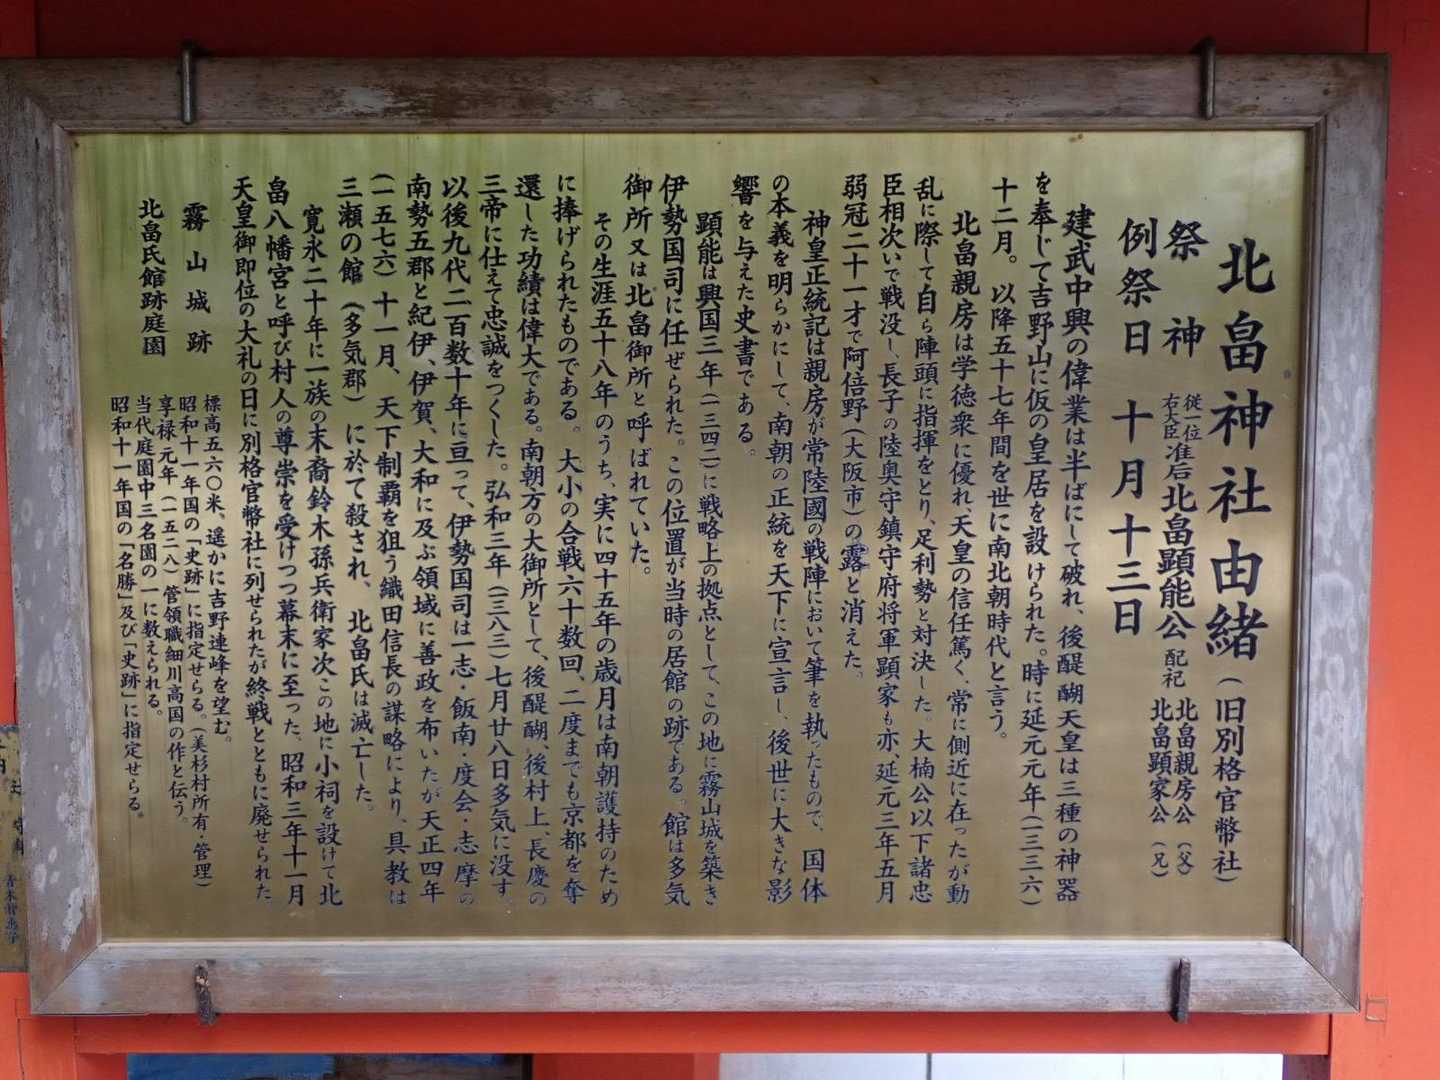 北畠神社由緒（旧別格官幣社）
祭神 従一位右大臣准后北畠顕能公 配祀 北畠親房公（父） 北畠顕家公（兄）
例祭日 十月十三日
建武中興の偉業は半ばにして破れ、後醍醐天皇は三種の神器
を奉じて吉野山に仮の皇居を設けられた。時に延元元年（一三三六）
十二月。以降五十七年間を世に南北朝時代と言う。
北畠親房は学徳衆に優れ、天皇の信任篤く、常に側近に在ったが動
乱に際して自ら陣頭に指揮をとり、足利勢と対決した。大楠公以下諸忠
臣相次いで戦没し、長子の陸奥守鎮守府将軍顕家も亦、延元三年五月
弱冠二十一才で阿倍野（大阪市）の露と消えた。
神皇正統記は親房が常陸國の戦陣において筆を執ったもので、国体
の本義を明らかにして、南朝の正統を天下に宣言し、後世に大きな影
響を与えた史書である。
顕能は興国三年（一三四二）に戦略上の拠点として、この地に霧山城を築き
伊勢国司に任ぜられた。この位置が当時の居館の跡である。館は多気
御所又は北畠御所と呼ばれていた。
その生涯五十八年のうち、実に四十五年の歳月は南朝護持のため
に捧げられたものである。大小の合戦六十数回、二度までも京都を奪
還した功績は偉大である。南朝方の大御所として、後醍醐、後村上、長慶の
三帝に仕えて忠誠をつくした。弘和三年（一三八三）七月廿八日多気に没す。
以後九代二百数十年に亘って、伊勢国司は一志・飯南・度会・志摩の
南勢五郡と紀伊、伊賀、大和に及ぶ領域に善政を布いたが天正四年
（一五七六）十一月、天下制覇を狙う織田信長の謀略により、具教は
三瀬の館（多気郡）に於て殺され、北畠氏は滅亡した。
寛永二十年に一族の末裔鈴木孫兵衛家次この地に小祠を設けて北
畠八幡宮と呼び村人の尊崇を受けつつ幕末に至った。昭和三年十一月
天皇御即位の大礼の日に別格官幣社に列せられたが終戦とともに廃せられた
霧山城跡
標高五六〇米、遥かに吉野連峰を望む。
昭和十一年国の「史跡」に指定せらる。（美杉村所有・管理）
北畠氏館跡庭園
享禄元年（一五二八）管領職細川高国の作と伝う。
当代庭園中三名園の一に数えられる。
昭和十一年国の「名勝」及び「史跡」に指定せらる。